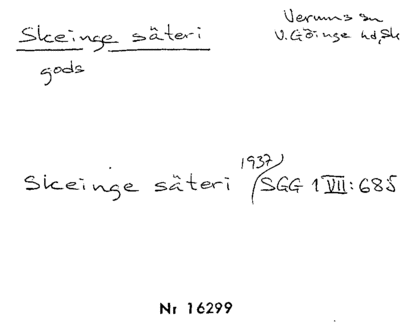 Skeinge säteri
gods
Verums sn
V. Göinge hd, Sk
Skeinge säteri 1937/SGG 1 VII: 685
Nr 16299